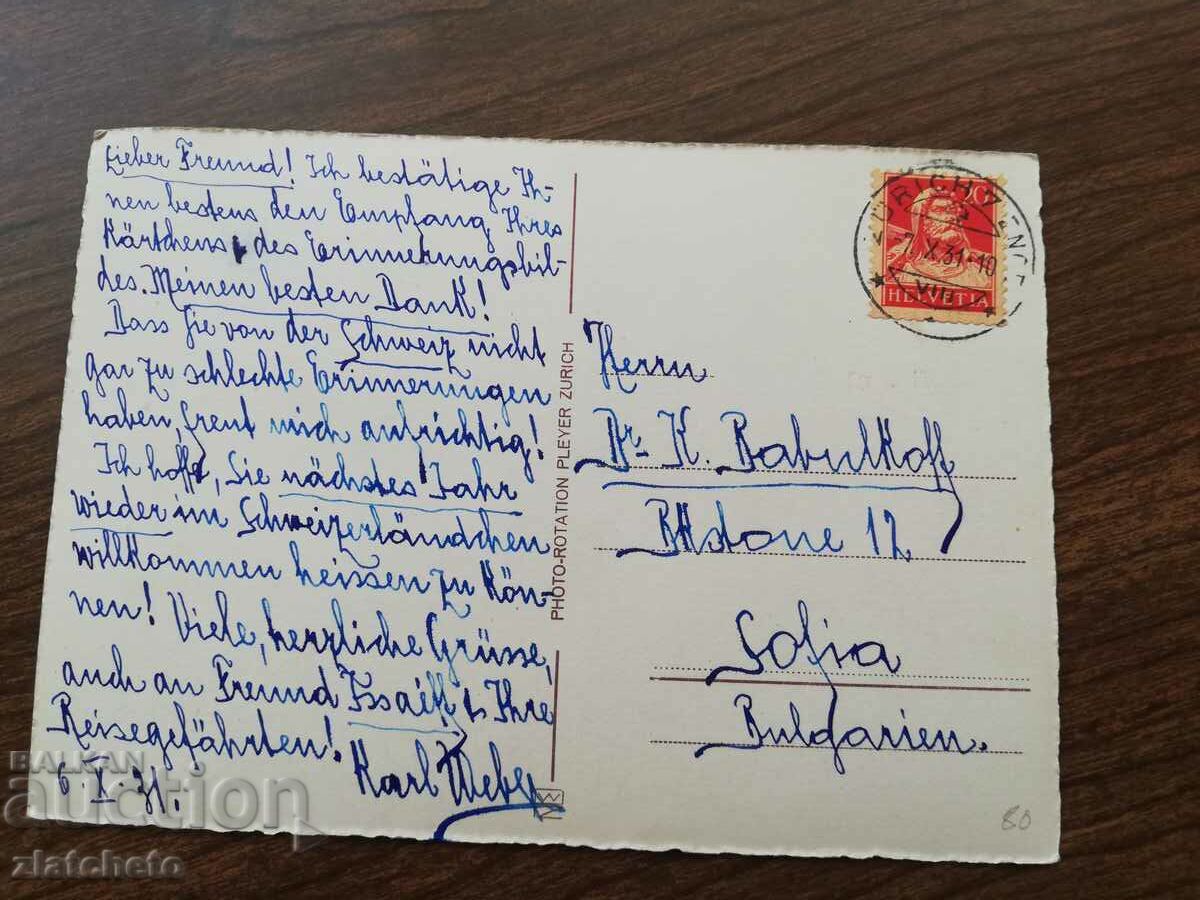 Lieber Freund! Ich bestätige Ih-
nen bestens den Empfang Ihres
Kärtchens & des Erinnerungsbil-
des. Meinen besten Dank!
Dass Sie von der Schweiz nicht
gar zu schlechte Erinnerungen
haben, freut mich aufrichtig!
Ich hoffe, Sie nächstes Jahr
wieder im Schweizerländchen
willkommen heissen zu kön-
nen! Viele, herzliche Grüsse,
auch an Freund Issaeff & Ihre
Reisegefährten!
6.X.31. Karl Weber
PHOTO-ROTATION PLEYER ZURICH
ZÜRICH 7
X.31-10
VIII
HELVETIA
Herrn
Dr. K. Babulkoff
12
Sofia
Bulgarien.
80
BALKAN
auction
zlatcheto